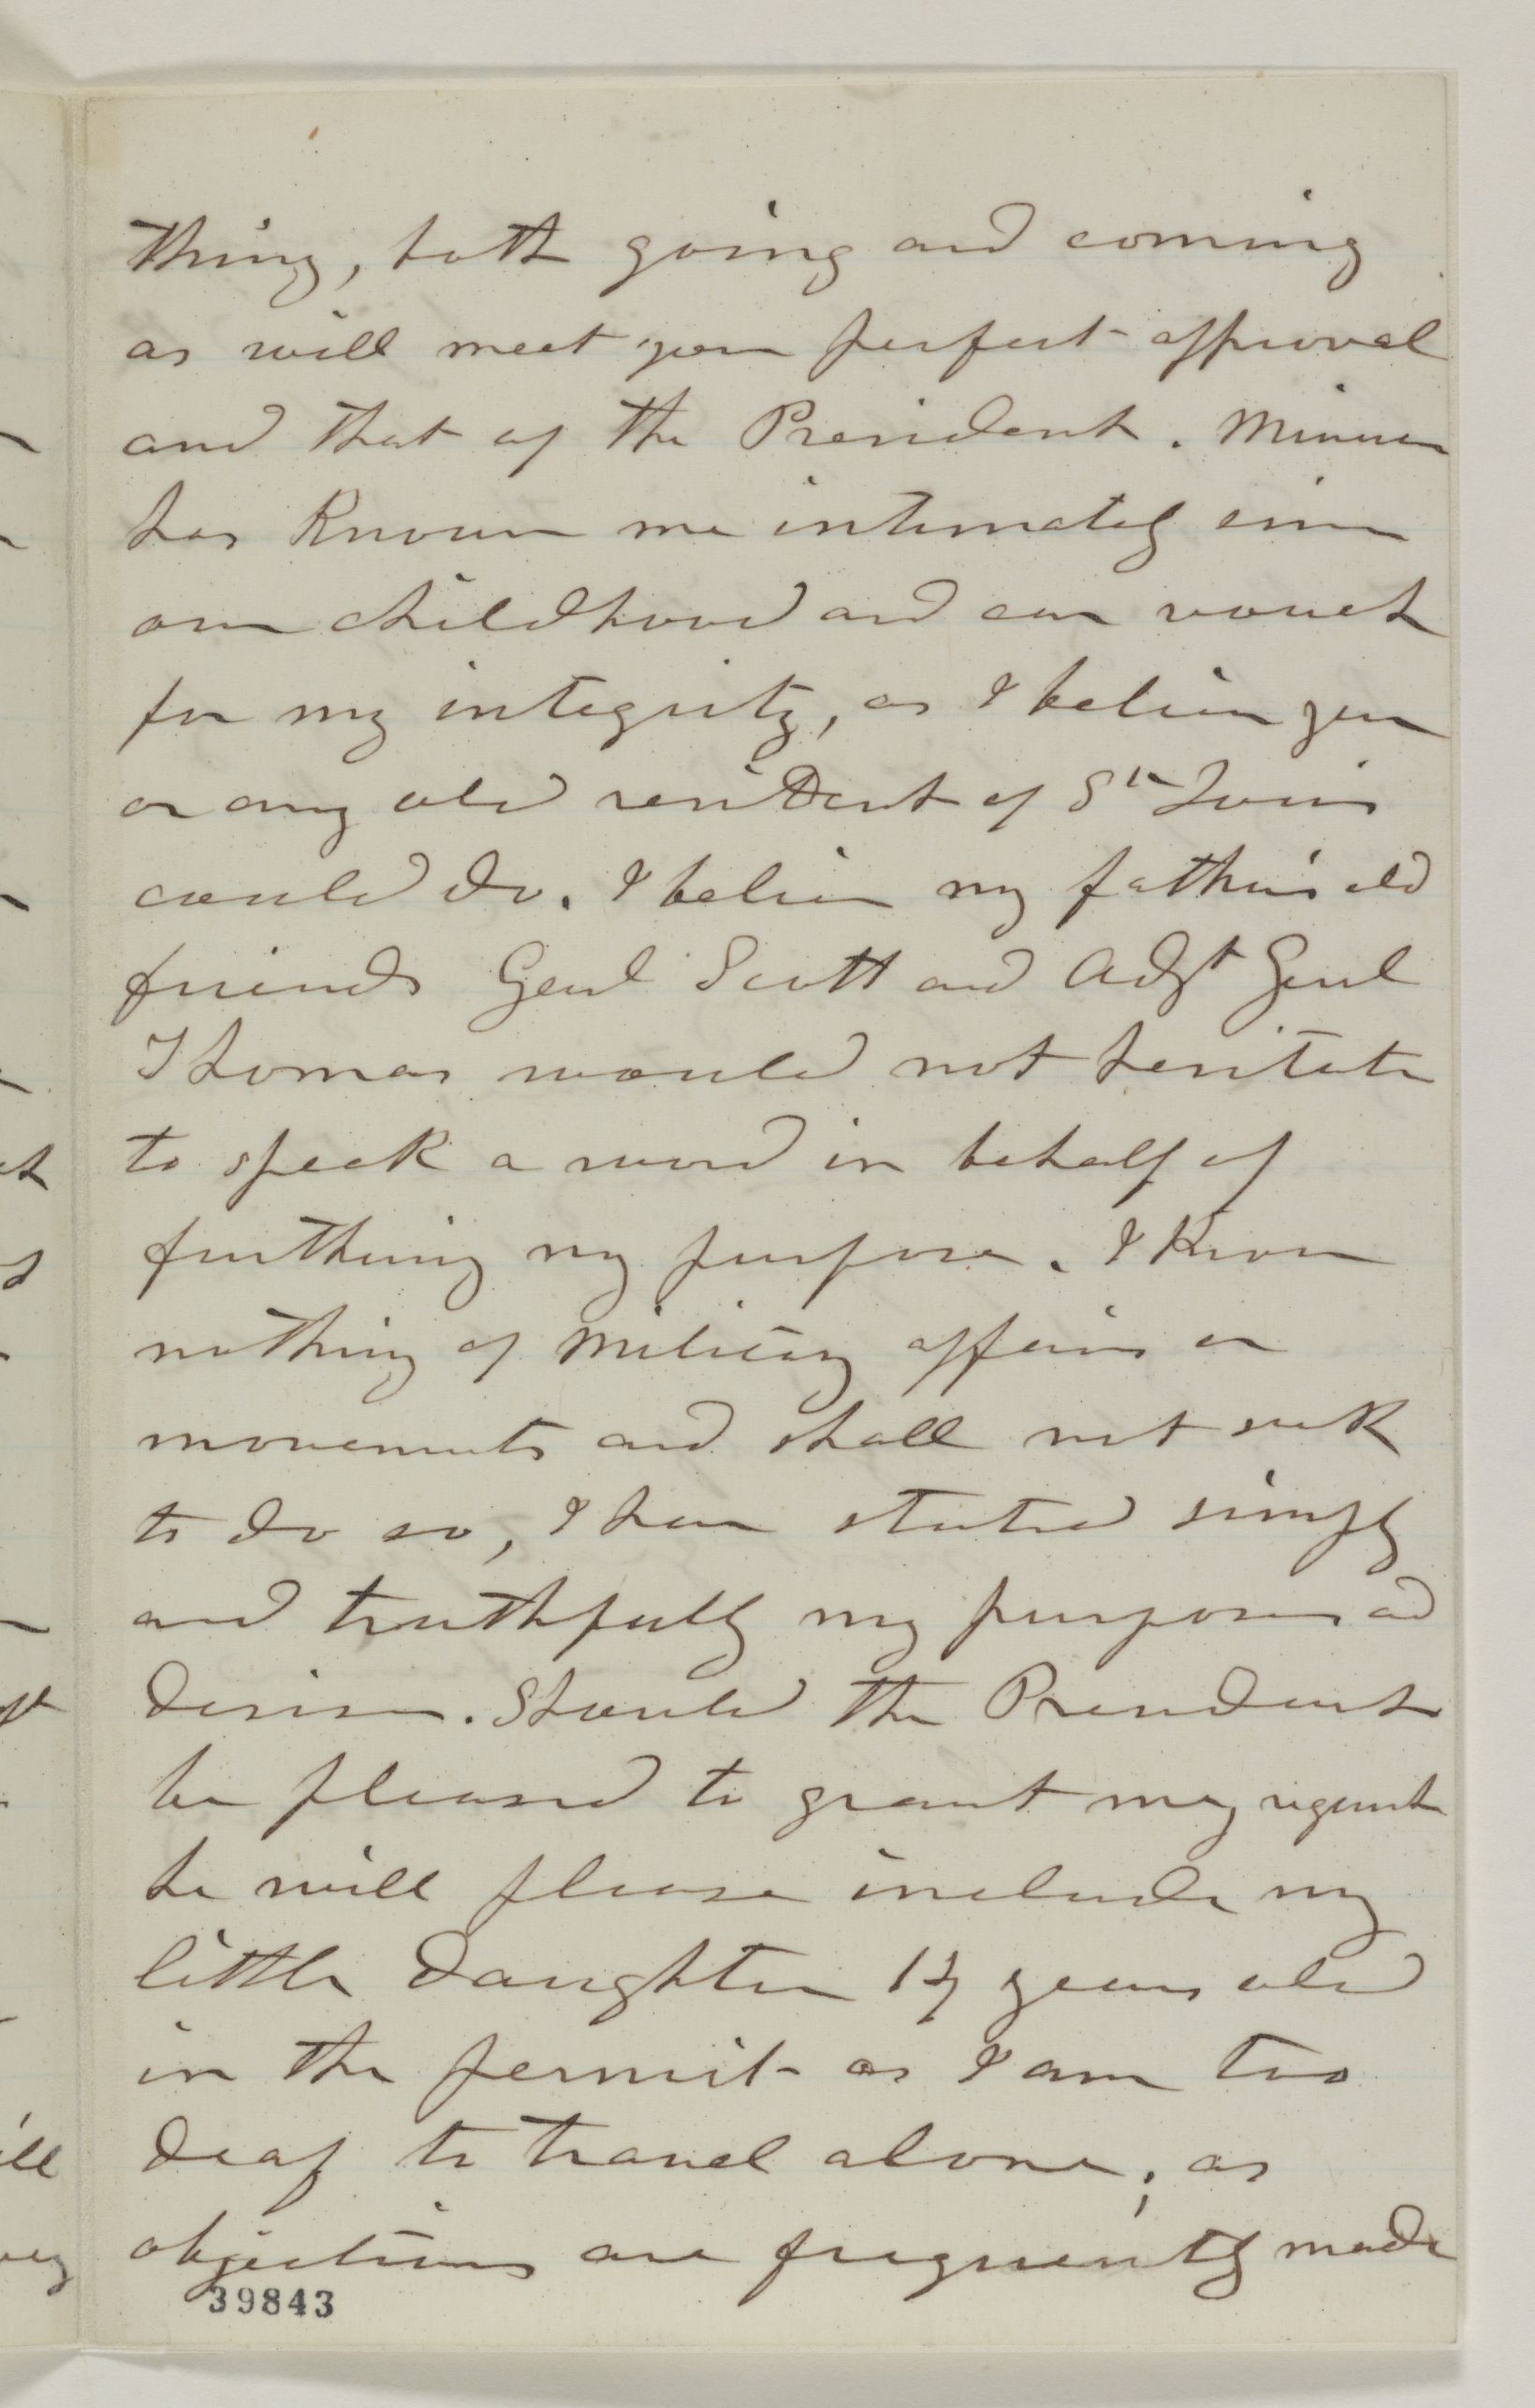 thing, both going and coming
as will meet your perfect approval
and that of the President. Minna
has Known me intimately since
our childhood and can vouch
for my integrity, as I believe you
or any old resident of St Louis
could do. I believe my father's old
friends Genl Scott and Adjt Genl
Thomas would not hesitate
to speak a word in behalf of
furthering my purpose. I Know
nothing of Military affairs or
movements and shall not seek
to do so, I have stated simply
and truthfully my purposes and
desires. Should the President
be pleased to grant my request
he will please include my
little daughter years old
in the permit as I am too
deaf to travel alone; as
objections are frequently made
39843